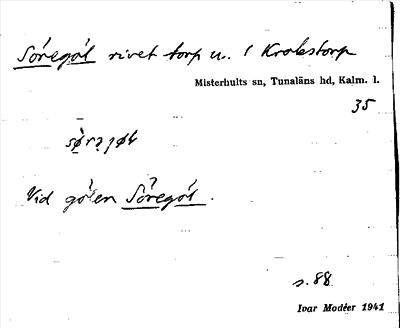 Söregöl rivet torp u. / Krokstorp
Misterhults sn, Tunaläns hd, Kalm. l.
35
Vid gölen Söregöl.
s. 88
Ivar Modéer 1941